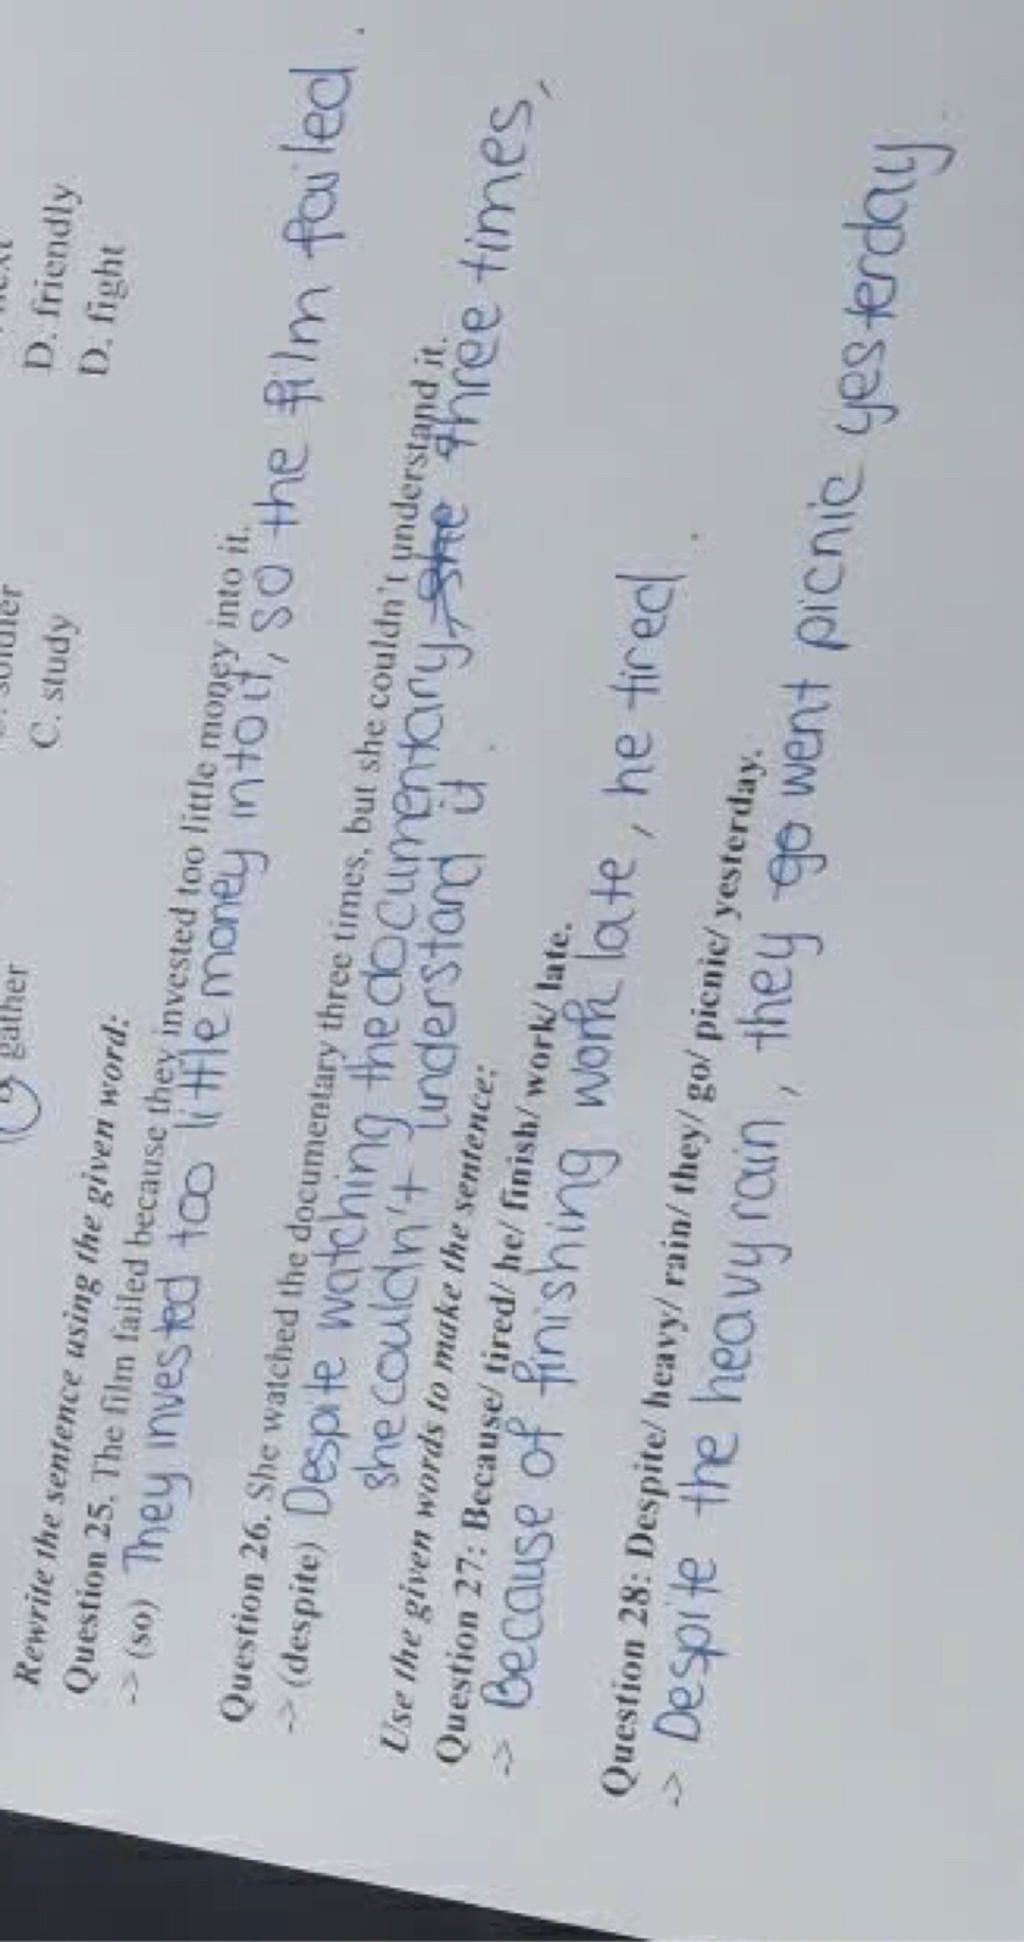 gather
C. study
D. friendly
D. fight
Rewrite the sentence using the given word:
Question 25. The film failed because they invested too little money into it.
-> (so) They invested too little money into it, so the film failed.
Question 26. She watched the documentary three times, but she couldn't understand it.
-> (despite) Despite watching the documentary, she three times,
she couldn't understand it.
Use the given words to make the sentence:
Question 27: Because/ tired/ he/ finish/ work/ late.
-> Because of finishing work late, he tired.
Question 28: Despite/ heavy/ rain/ they/ go/ picnic/ yesterday.
-> Despite the heavy rain, they go went picnic yesterday.